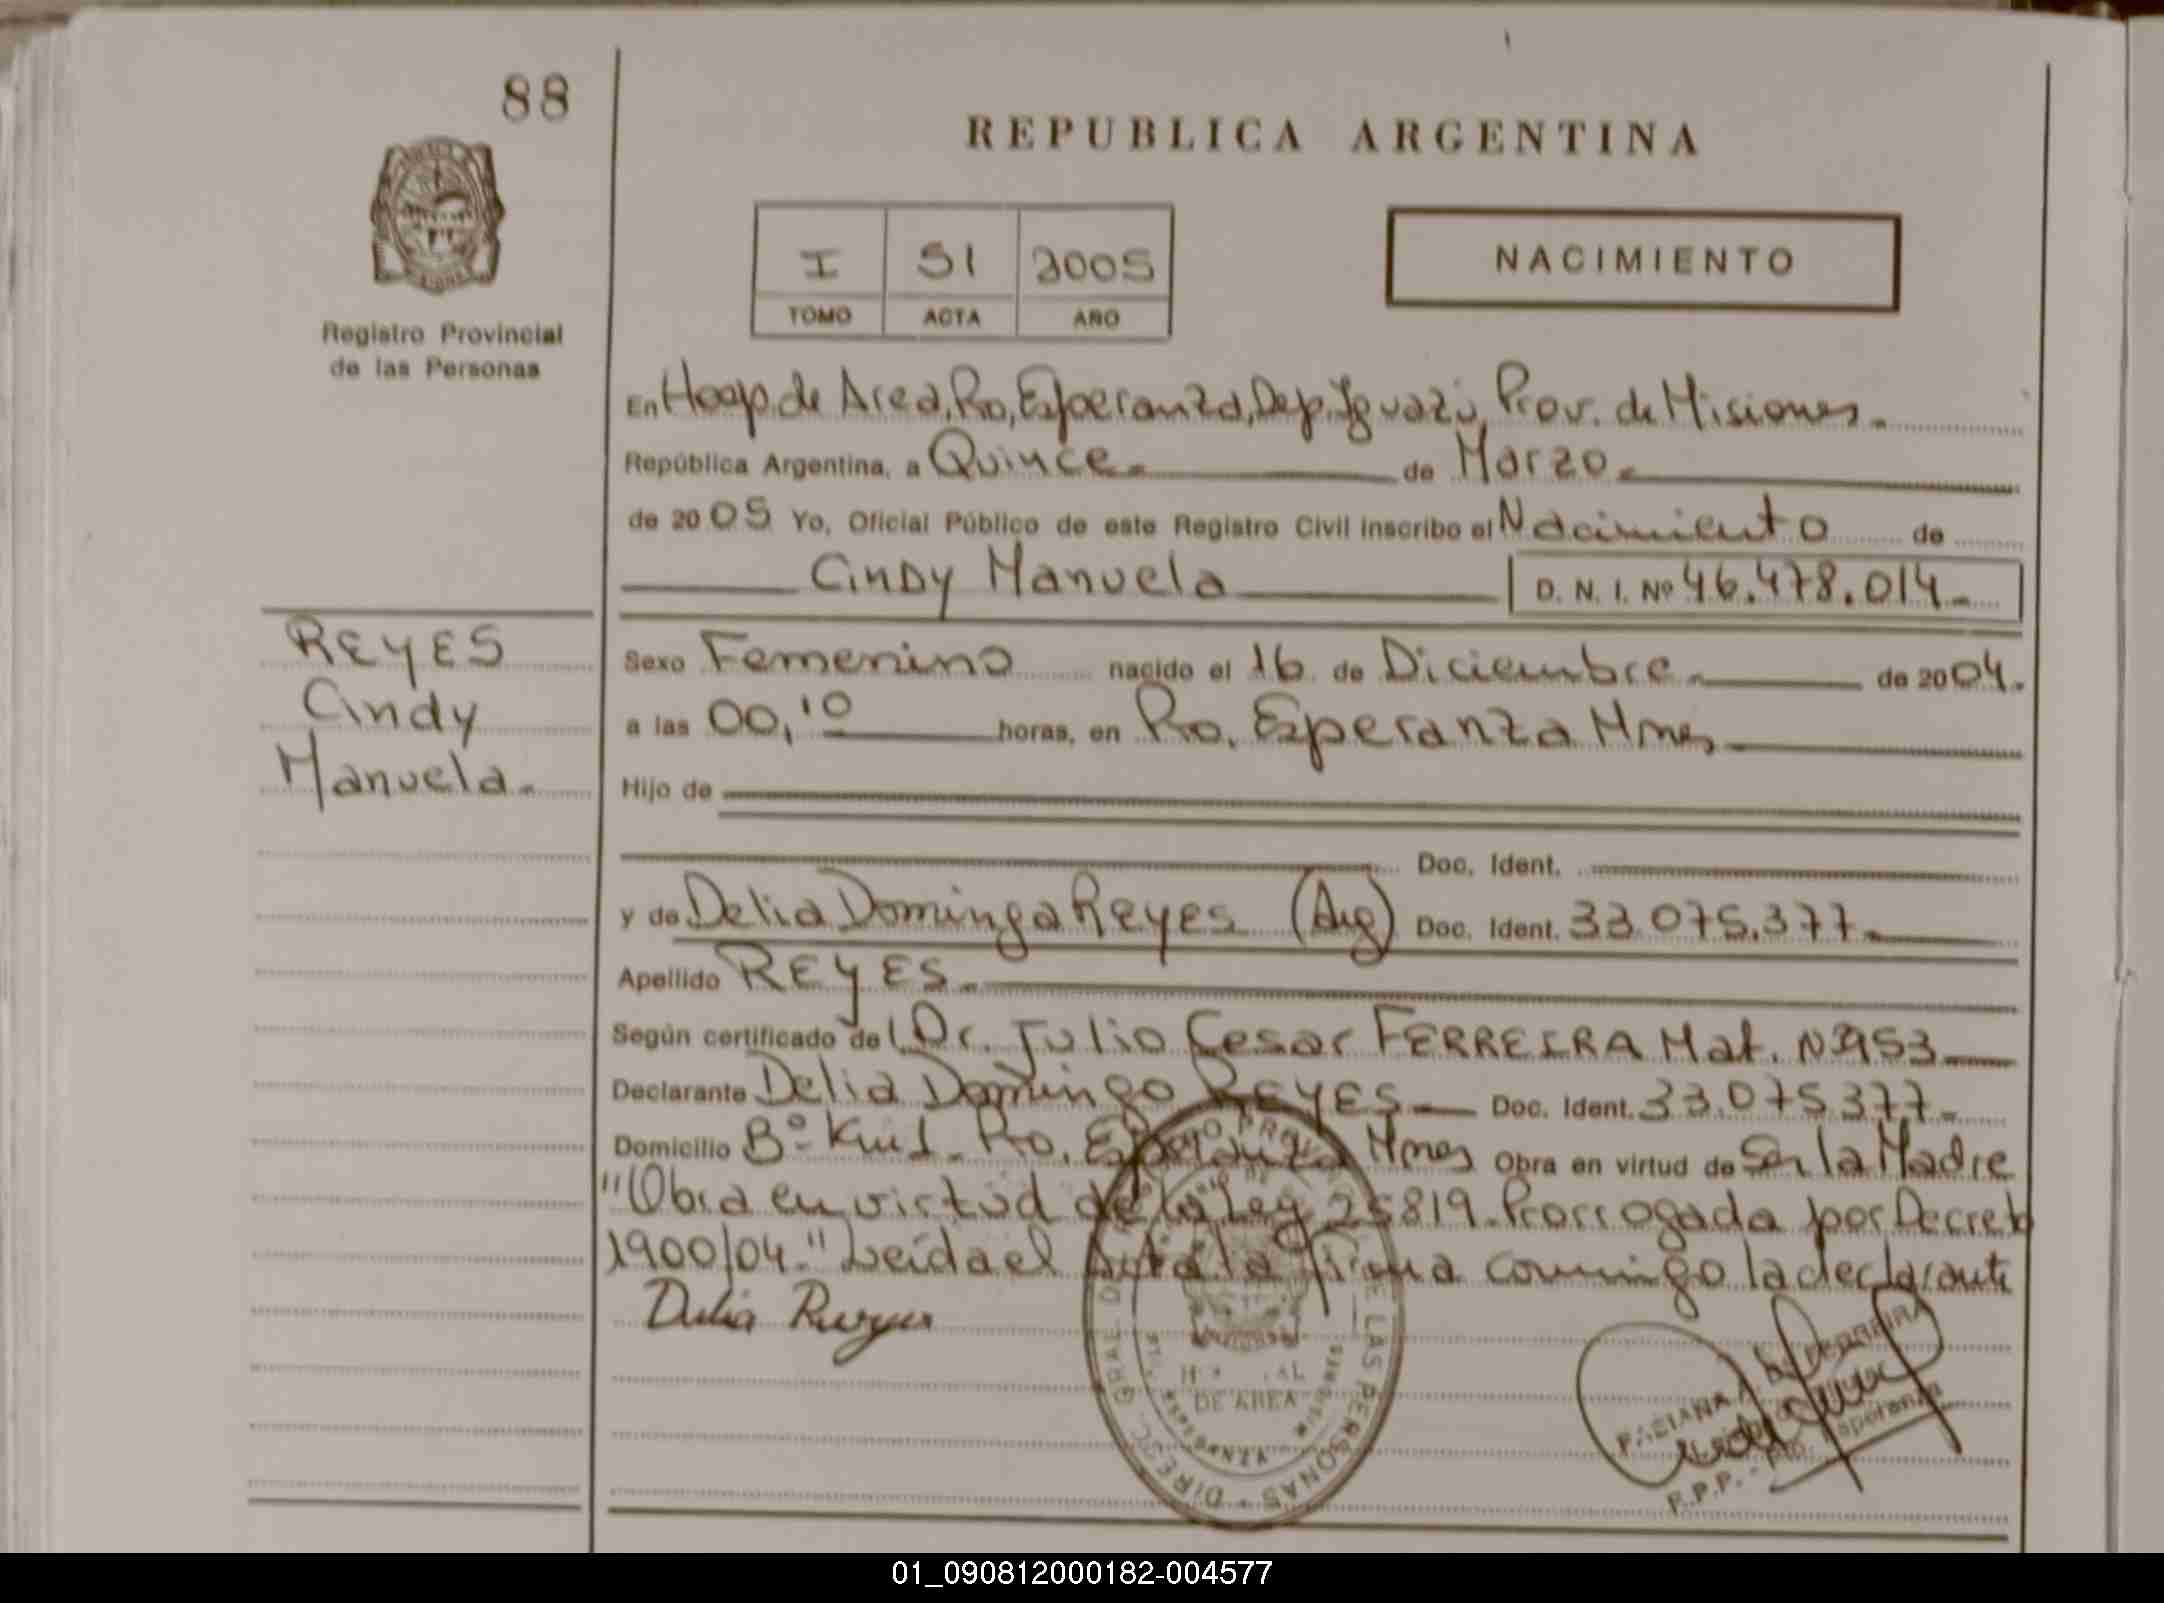 88
REPUBLICA ARGENTINA
I 51 2005
TOMO ACTA AÑO
NACIMIENTO
Registro Provincial
de las Personas
En Hosp. de Area, Pto, Esperanza, Dep. Iguazú, Prov. de Misiones.
República Argentina, a Quince de Marzo
de 2005 Yo, Oficial Público de este Registro Civil inscribo el Nacimiento de
Cindy Manuela D. N. I. Nº 46.478.014.
REYES
Cindy
Manuela.
Sexo Femenino nacido el 16 de Diciembre de 2004.
a las 00,10 horas, en Pto. Esperanza Mnes
Hijo de
Doc. Ident.
y de Delia Dominga Reyes (Arg) Doc. Ident. 33.075.377.
Apellido REYES.
Según certificado de Dr. Julio Cesar FERREIRA Mat. Nº
Declarante Delia Domingo REYES Doc. Ident. 33.075.377.
Domicilio Bº Km 1. Pto. Esperanza Mnes Obra en virtud de Ser la Madre
"Obra en virtud de la Ley 25819. Prorrogada por Decreto
1900/04." Leida el Acta la firma conmigo la declarante
Delia Reyes
DIREC. GRAL. DE LAS PERSONAS
DE AREA
ESPERANZA
FERREIRA
P.P.P. - Pto. Esperanza
01_090812000182-004577